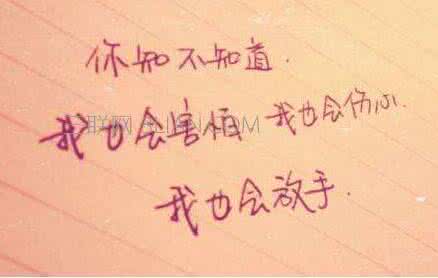 你知不知道.
我也会害怕 我也会伤心.
我也会放手.